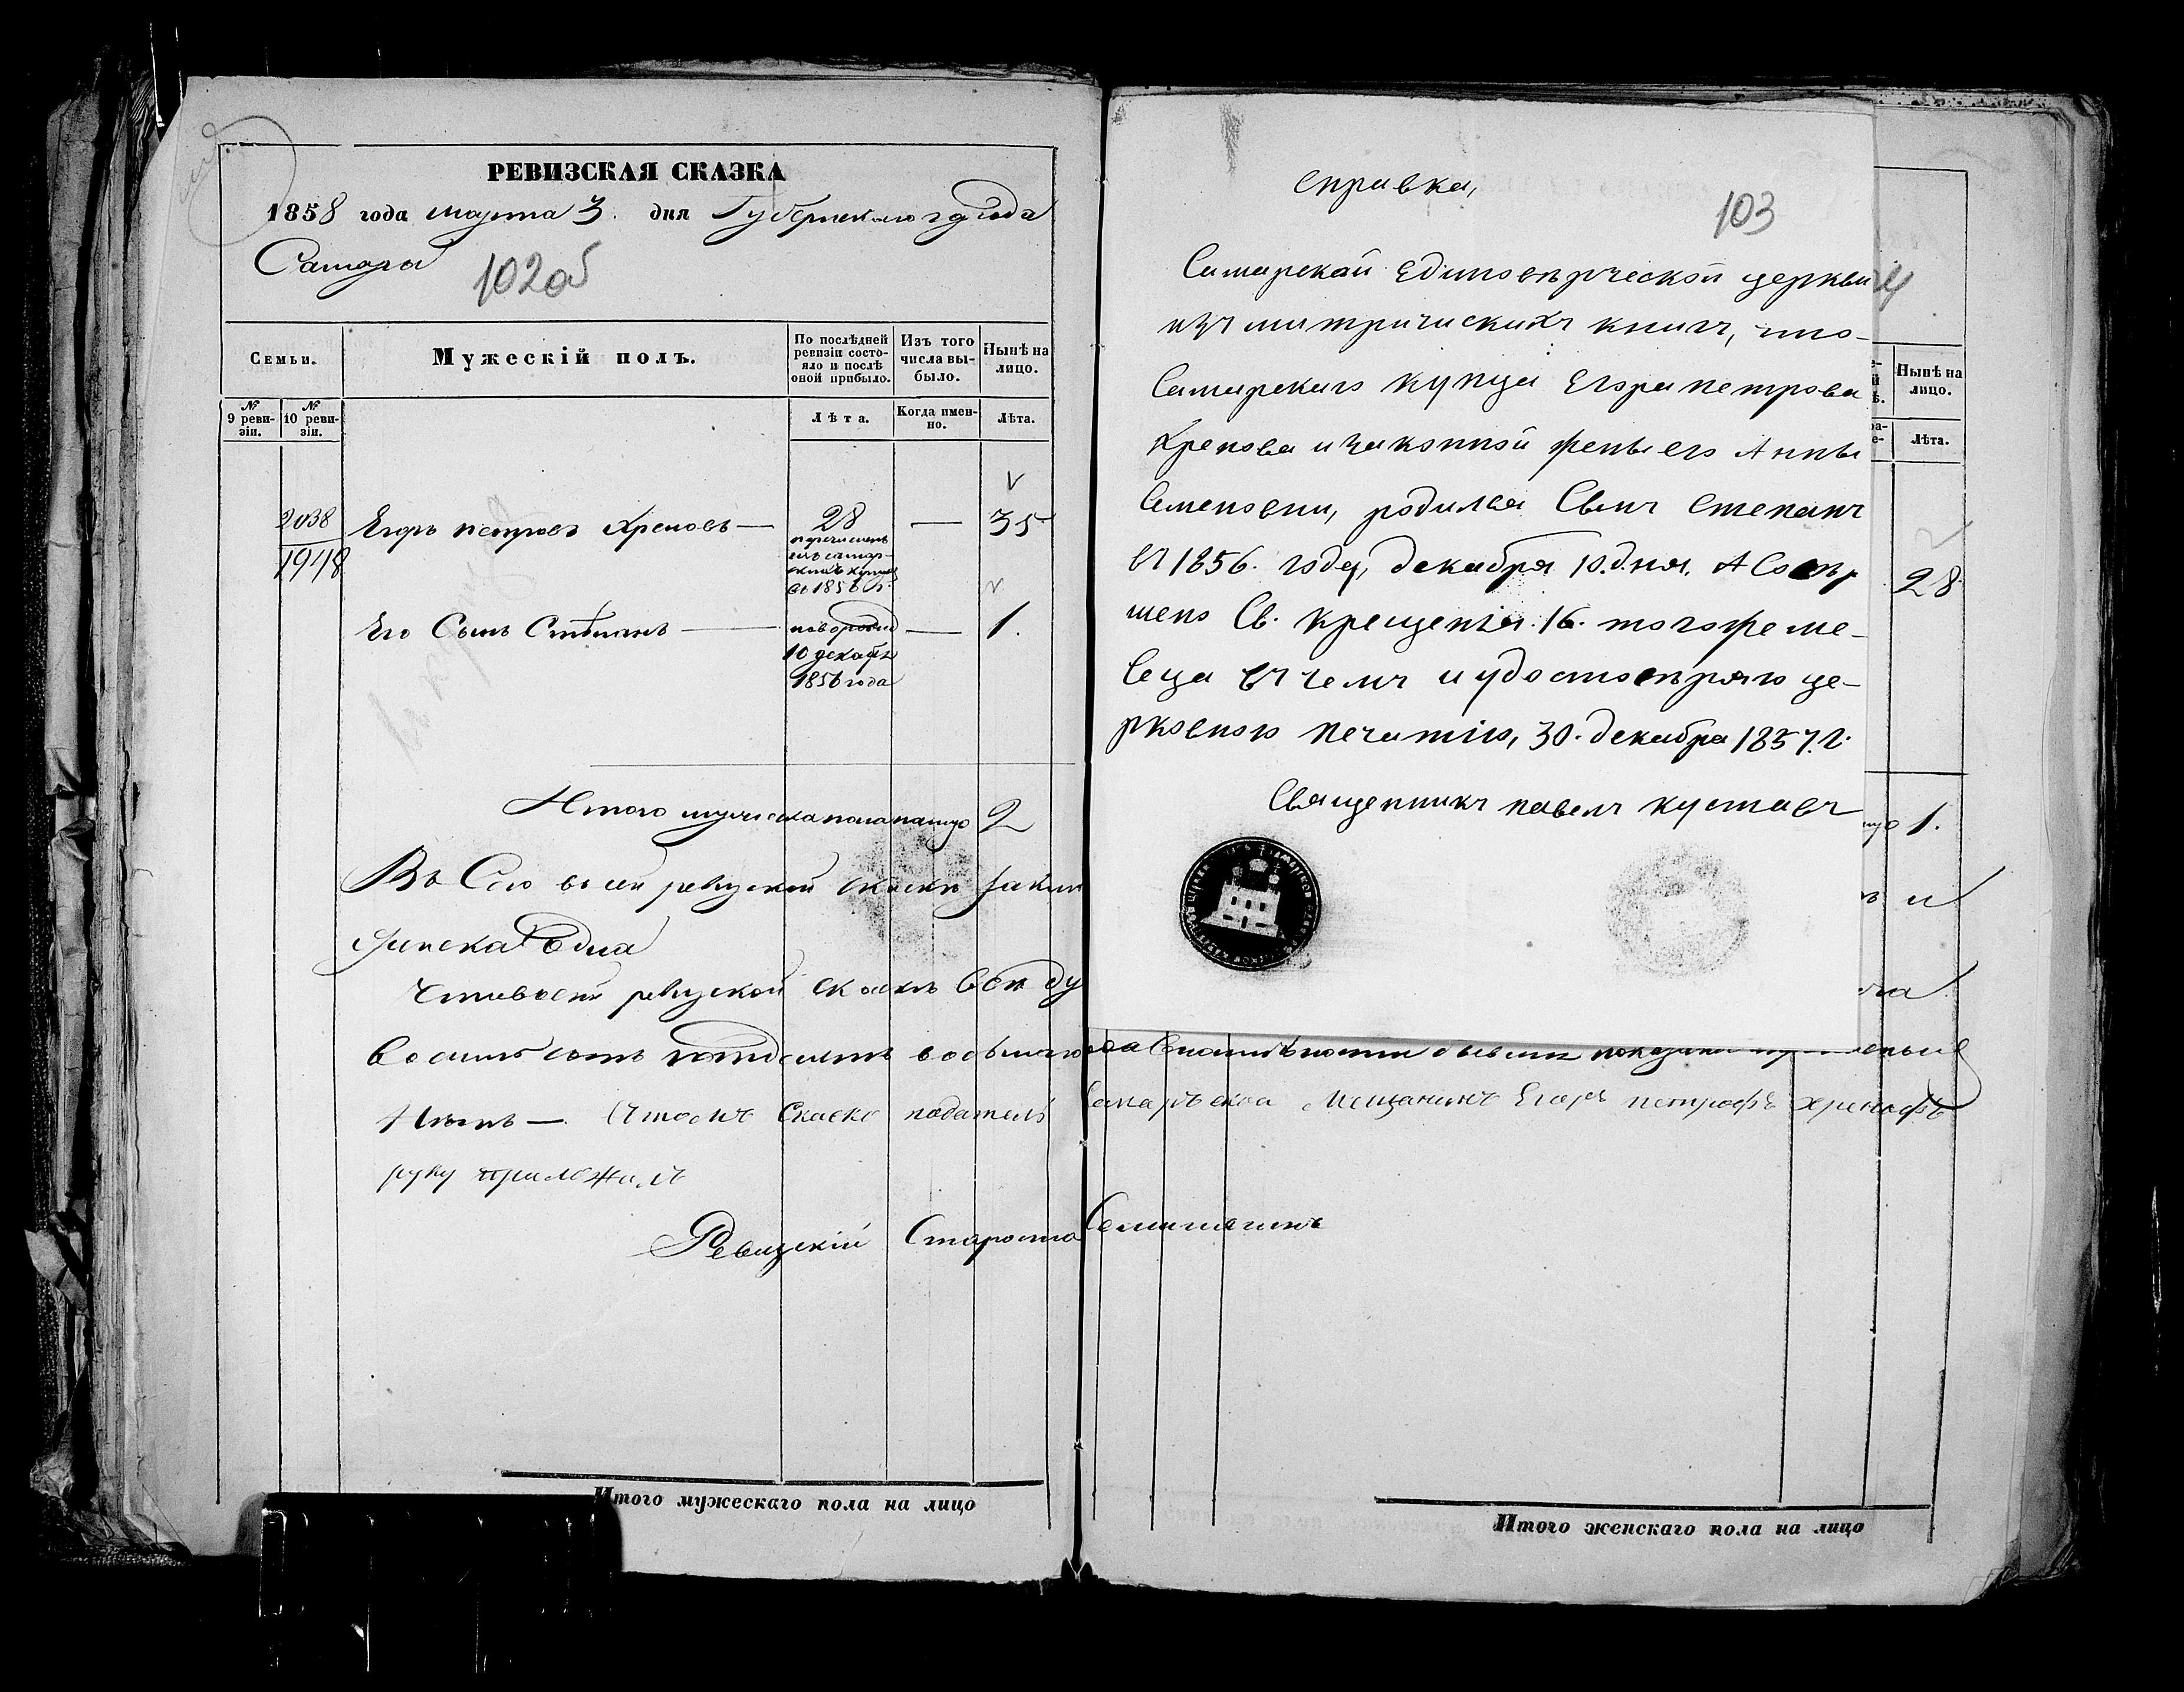 РЕВИЗСКАЯ СКАЗКА
1858 года марта 3. дня Губернскаго города
Самары
102об
Семьи.
Мужескій полъ.
По послѣдней ревизіи состояло и послѣ оной прибыло.
Изъ того числа выбыло.
Нынѣ на лицо.
№ 9 ревизіи.
№ 10 ревизіи.
Лѣта.
Когда именно.
Лѣта.
2038
1948
Егоръ петровъ Хреновъ — 28 — 35
перечисленъ
изъ самар-
скихъ купцов
въ 1858 г.
Его Сынъ Стѣпанъ — новорожд — 1.
10 декабр
1856 года
Итого мужеска пола налицо 2
Въ Сею въ сей ревизской скаске
Одна
Что въ сей ревизской скаске все ду
Нѣтъ — Ктоемъ Скаске подателъ Самаръская Мещанинъ Егоръ петрофъ хренофъ
руку приложилъ
Ревизскій Староста
Итого мужескаго пола на лицо
справка,
103
Самарской Единовѣрческой церкви
изъ митричискихъ книгъ, что-
Самарскаго купца Егора петрова
Хренова и законной жены его Анны
Семеновни, родился Сынъ степанъ
въ 1856. году, декабря 10. дня. А Совѣр
шено Св. крещенія. 16. тогоже ме-
сеца въ чемъ и удостовѣряю це-
рковною печатію, 30. декабря 1857. г.
Священникъ павелъ кустовъ
Нынѣ на лицо.
Лѣта.
28
1.
и
Итого женскаго пола на лицо